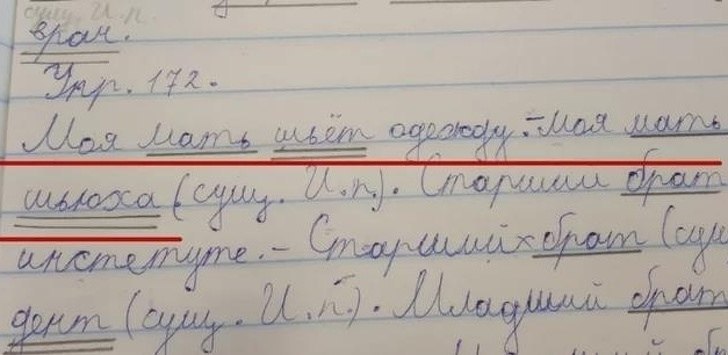 сущ. И. п.
врач.
Упр. 172.
Моя мать шьёт одежду. - Моя мать
шьюха (сущ. И.п.). Старший брат
инстетуте. - Старший брат (сущ
дент (сущ. И.п.). Младший брат